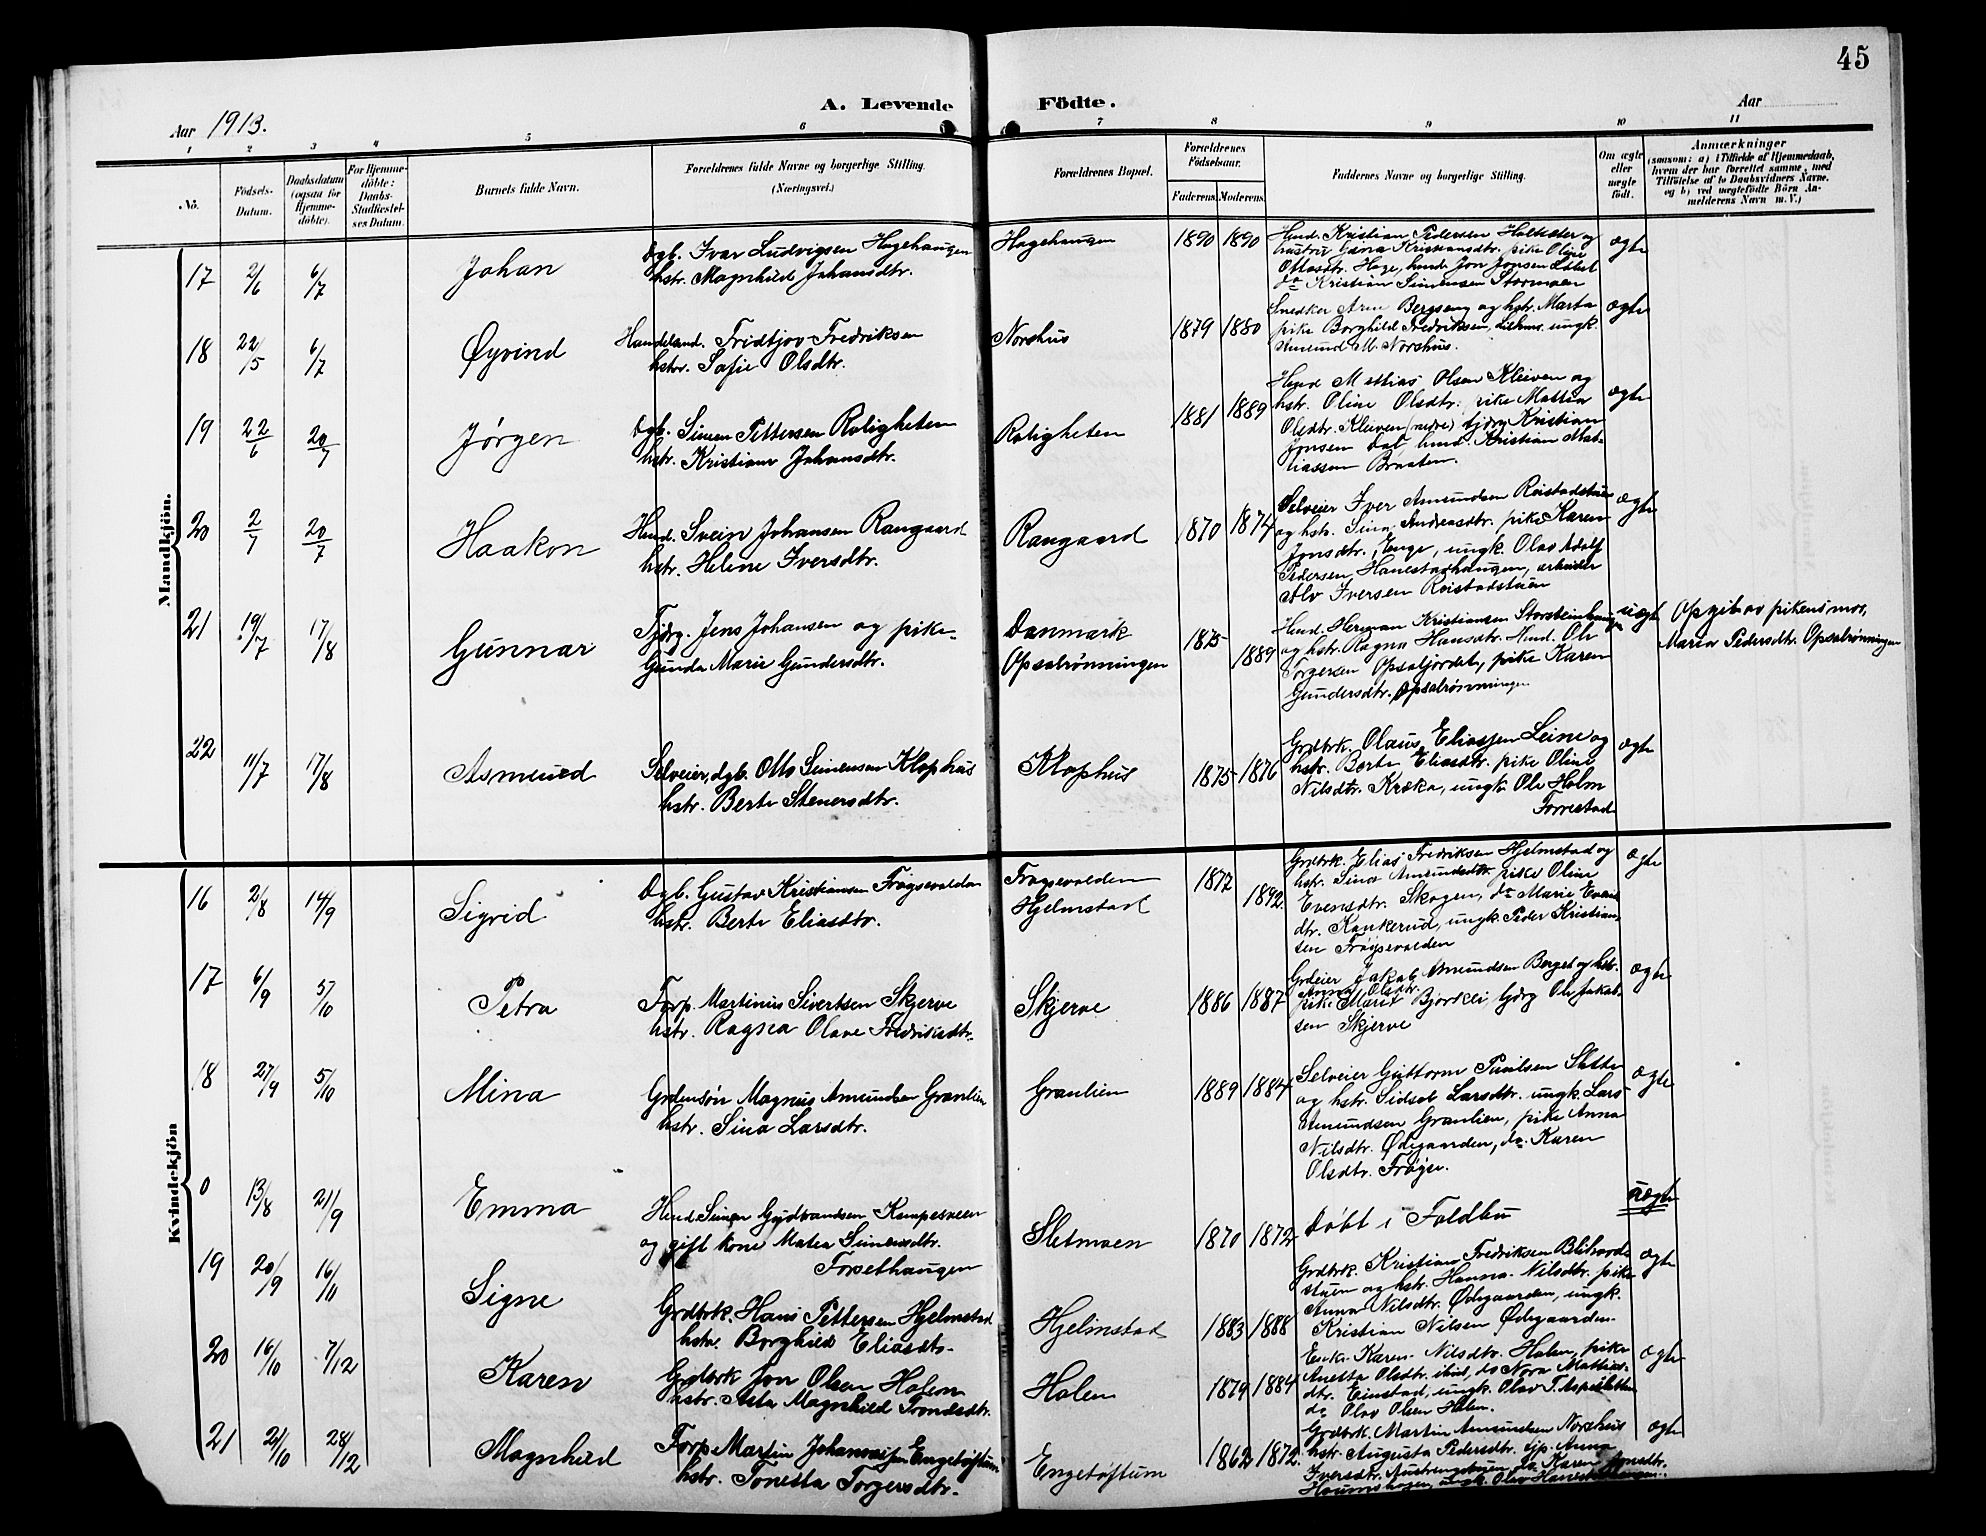 45
A. Levende Födte.
Aar 1913.
Aar
1 2 3 4 5 6 7 8 9 10 11
No.
Födsels-Datum.
Daabsdatum (ogsaa for Hjemme-döbte).
For Hjemme-döbte: Daabs-Stadfæstel-ses Datum.
Barnets fulde Navn.
Forældrenes fulde Navne og borgerlige Stilling. (Næringsvei.)
Forældrenes Bopæl.
Forældrenes Födselsaar.
Faderens. Moderens.
Faddernes Navne og borgerlige Stilling.
Om ægte eller uægte födt.
Anmærkninger
(saasom: a) i Tilfælde af Hjemmedaab, hvem der har forrettet samme, med Tilföielse af to Daabsvidners Navne, og b) ved uægtefödte Börn An-melderens Navn m. V.)
Mandkjön.
17 2/6 6/7 Johan
Dgb. Ivar Ludvigsen Hagehaugen
hstr. Magnhild Johansdtr.
Hagehaugen 1890 1890
Husd. Kristian Pedersen Holtseter og
hustru Kristiansdtr. pike Oline
Ottosdtr. Hage, husd. Jon Jonsen
do Kristian Simensen Stormoen
ægte
18 22/5 6/7 Øyvind
Handelsmd. Fridtjov Fredriksen
hstr. Sofie Olsdtr.
Norshus 1879 1880
Snedker Arne Bergseng og hstr. Marta
pike Borghild Fredriksen, ungk.
Amund M. Norshus.
ægte
19 22/6 20/7 Jørgen
Dgb. Simen Pettersen Roligheten
hstr. Kristiane Johansdtr.
Roligheten 1881 1889
Husd Mathias Olsen Kleiven og
hstr. Oline Olsdtr. pike Mathea
Olsdtr. Kleiven (nedre) tjdrg Kristian
Jonsen Dal, husd. Kristian Mat-
hiassen Braaten.
ægte
20 2/7 20/7 Haakon
Husd. Svein Johansen Rangaard
hstr. Heline Iversdtr.
Rangaard 1870 1874
Selveier Iver Amundsen Roistadstuen
og hstr. Sina Andreasdtr. pike Karen
Jonsdtr. Enge, ungk. Olav Adolf
Pedersen Hanestadhaugen, arbeider
Alv Iversen Roistadstuen
ægte
21 19/7 17/8 Gunnar
Tjdrg. Jens Johansen og pike
Gunda Marie Gundersdtr.
Danmark
Opsalrønningen 1875 1889
Husd. Herman Kristiansen Storsteinhaugen
og hstr. Ragna Hansdtr. Husd. Ole
Torgersen Opsaljordet, pike Karen
Gundersdtr. Opsalrønningen
uægte
Opgit av pikens mor,
Maria Pedersdtr. Opsalrønningen
22 11/7 17/8 Asmund
Selveier, dgb. Otto Simensen Klophus
hstr. Berte Stenersdtr.
Klophus 1875 1876
Grdbrk. Olaus Eliassen Leine og
hstr. Berte Eliasdtr. pike Oline
Nilsdtr. Kræka, ungk. Ole Holm
Forrestad
ægte
Kvindekjön
16 2/8 14/9 Sigrid
Dgb. Gustav Kristiansen Frøysevolden
hstr. Berte Eliasdtr.
Frøysevolden
Hjelmstad 1877 1892
Grdbrk. Elias Fredriksen Hjelmstad og
hstr. Sina Amundsdtr. pike Oline
Evensdtr. Skogen, do Marie Evens
dtr. Kankerud, ungk. Peder Kristian
sen Frøysevolden
ægte
17 6/9 5/10 Petra
Forp. Martinius Sivertsen Skjerve
hstr. Ragna Olave Fredriksdtr.
Skjerve 1886 1887
Grdeier Jakob Amundsen Berget og hstr.
Anna Olsdtr.
pike Marit Bjørkli tjdrg Ole Jakob-
sen Skjerve
ægte
18 27/9 5/10 Mina
Grdmsøn Magnus Amundsen Granlien
hstr. Sina Larsdtr.
Granlien 1889 1884
Selveier Guttorm Paulsen Slette
og hstr. Sidsel Larsdtr. ungk. Lars
Amundsen Granlien, pike Anna
Nilsdtr. Ødegaarden, do. Karen
Olsdtr. Frøyse.
ægte
0 13/8 21/9 Emma
Husd. Simen Gudbrandsen Kampesveen
og gift kone Matea Simensdtr.
Forsethaugen
Sletmoen 1870 1872
Døbt i Foldbu
uægte
19 20/9 16/11 Signe
Grdbrk. Hans Pettersen Hjelmstad
hstr. Borghild Eliasdtr.
Hjelmstad 1883 1888
Grdbrk. Kristian Fredriksen
stuen og hstr. Hanna Nilsdtr. pike
Anna Nilsdtr. Ødegaarden, ungk.
Kristian Nilsen Ødegaarden.
ægte
20 16/10 7/12 Karen
Grdbrk Jon Olsen Holen
hstr. Asta Magnhild Trondsdtr.
Holen 1879 1884
Enke Karen Nilsdtr. Holen, pike
Anetta Olsdtr. ibid, do Nora Mathias
dtr. Einstad, ungk. Olav T. Aspesletten
do Olav Olsen Holen.
ægte
21 21/10 28/12 Magnhild
Forp Martin Johannessen Engetøftum
hstr. Tonetta Torgersdtr.
Engetøftum 1862 1872
Grdbrk. Martin Amundsen Norshus
hstr. Augusta Pedersdtr. tjp. Anna
Iversdtr. do. Karen Jonsdtr.
ungk. Olav
ægte